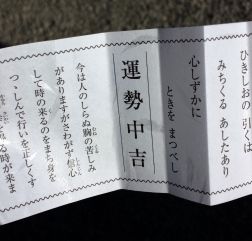 ひきしおの 引くは
みちくる あしたあり
心しずかに
ときを まつべし
運勢中吉
今は人のしらぬ胸の苦しみ
がありますがさわがず信心
して時の来るのをまち身を
つゝしんで行いを正しくす
時が来ま